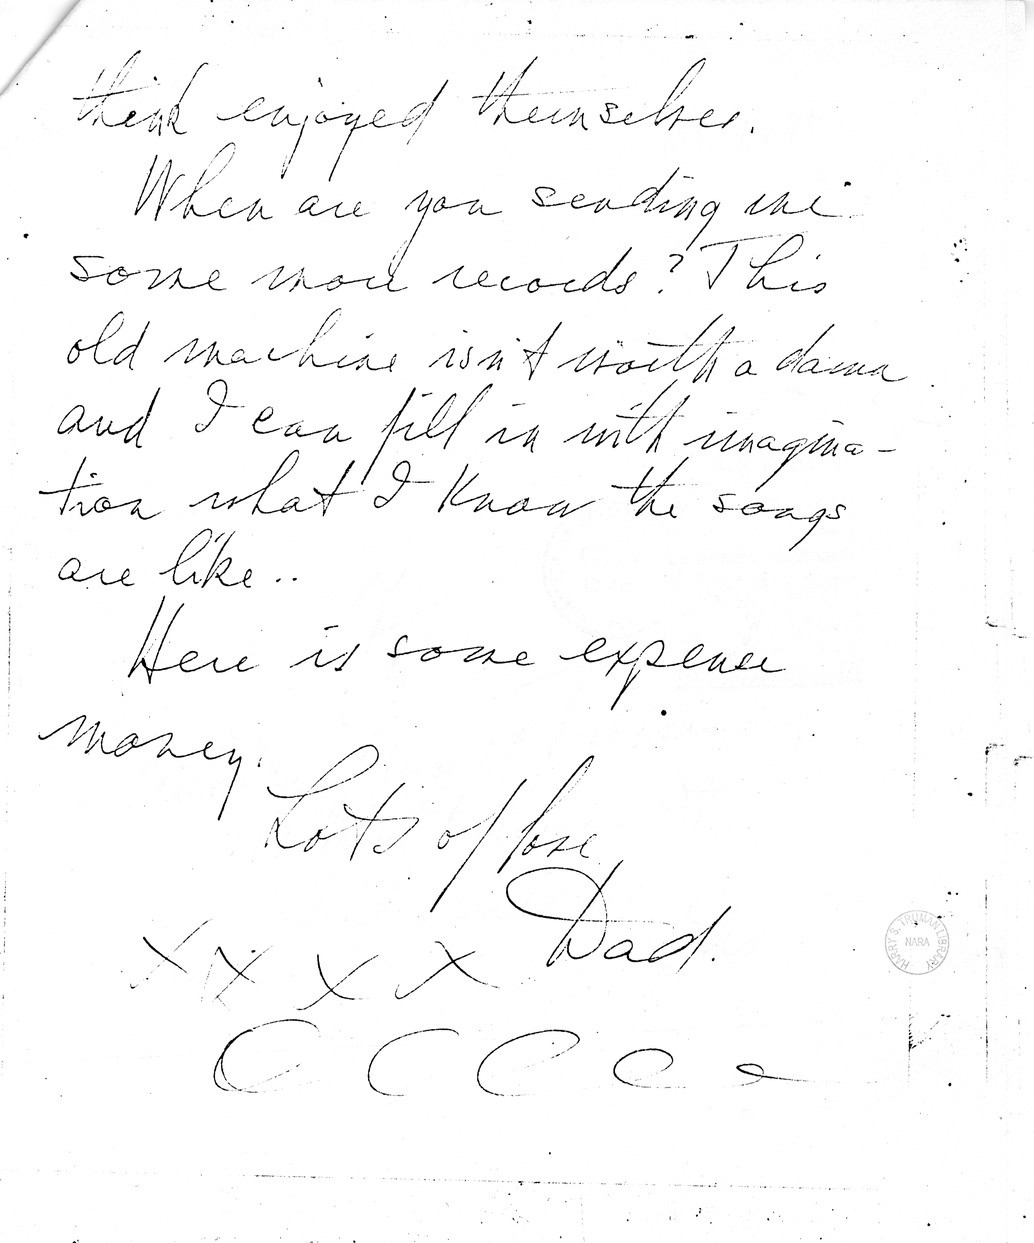 think enjoyed themselves.
When are you sending me
some more records? This
old machine isn't worth a damn
and I can fill in with imagina-
tion what I know the songs
are like..
Here is some expense
money.
Lots of love
Dad.
X X X X
O O O O O
HARRY S. TRUMAN LIBRARY
NARA